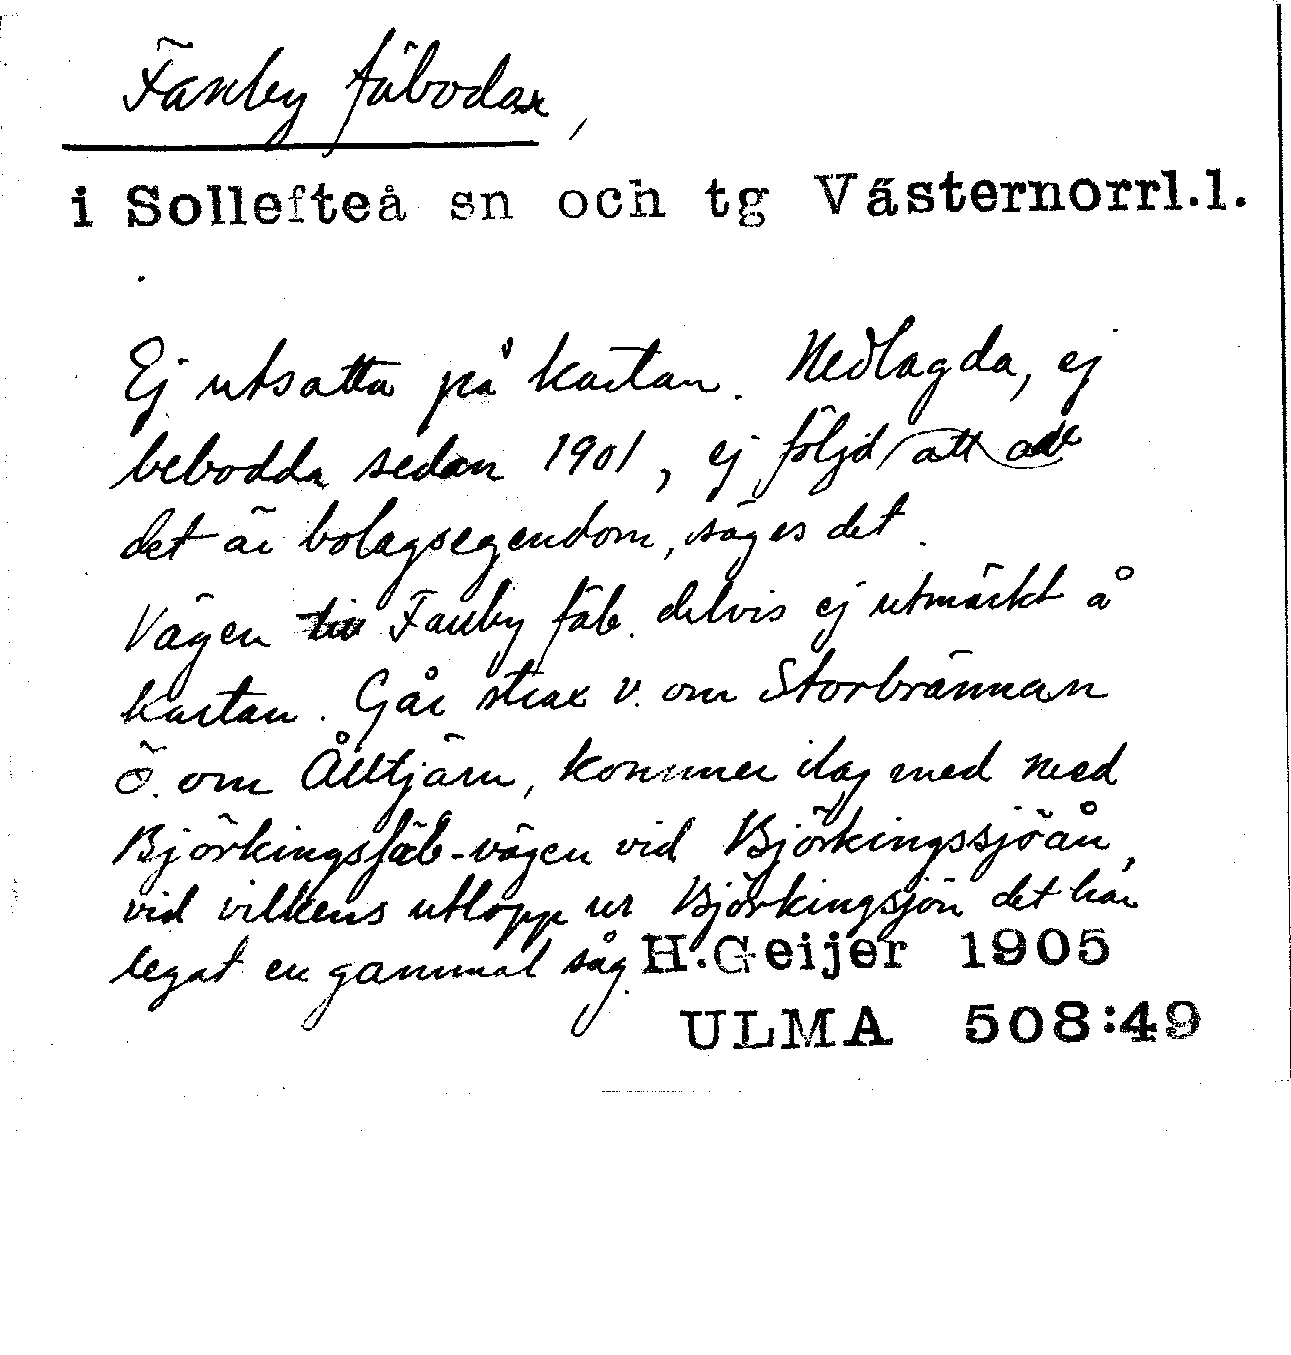 Fanby fäbodar,
i Sollefteå sn och tg Västernorrl.l.
Ej utsatta på kartan. Nedlagda, ej
bebodda sedan 1901, ej följd att
det är bolagsegendom, säges det.
Vägen till Fanby fäb. delvis ej utmärkt å
kartan. Går strax v. om Storbrännan
ö. om Ålltjärn, kommer ilag med med
Björkingsfäb-vägen vid Björkingssjöån,
vid vilkens utlopp ur Björkingsjön det har
legat en gammal såg.
H.Geijer 1905
ULMA 508:49